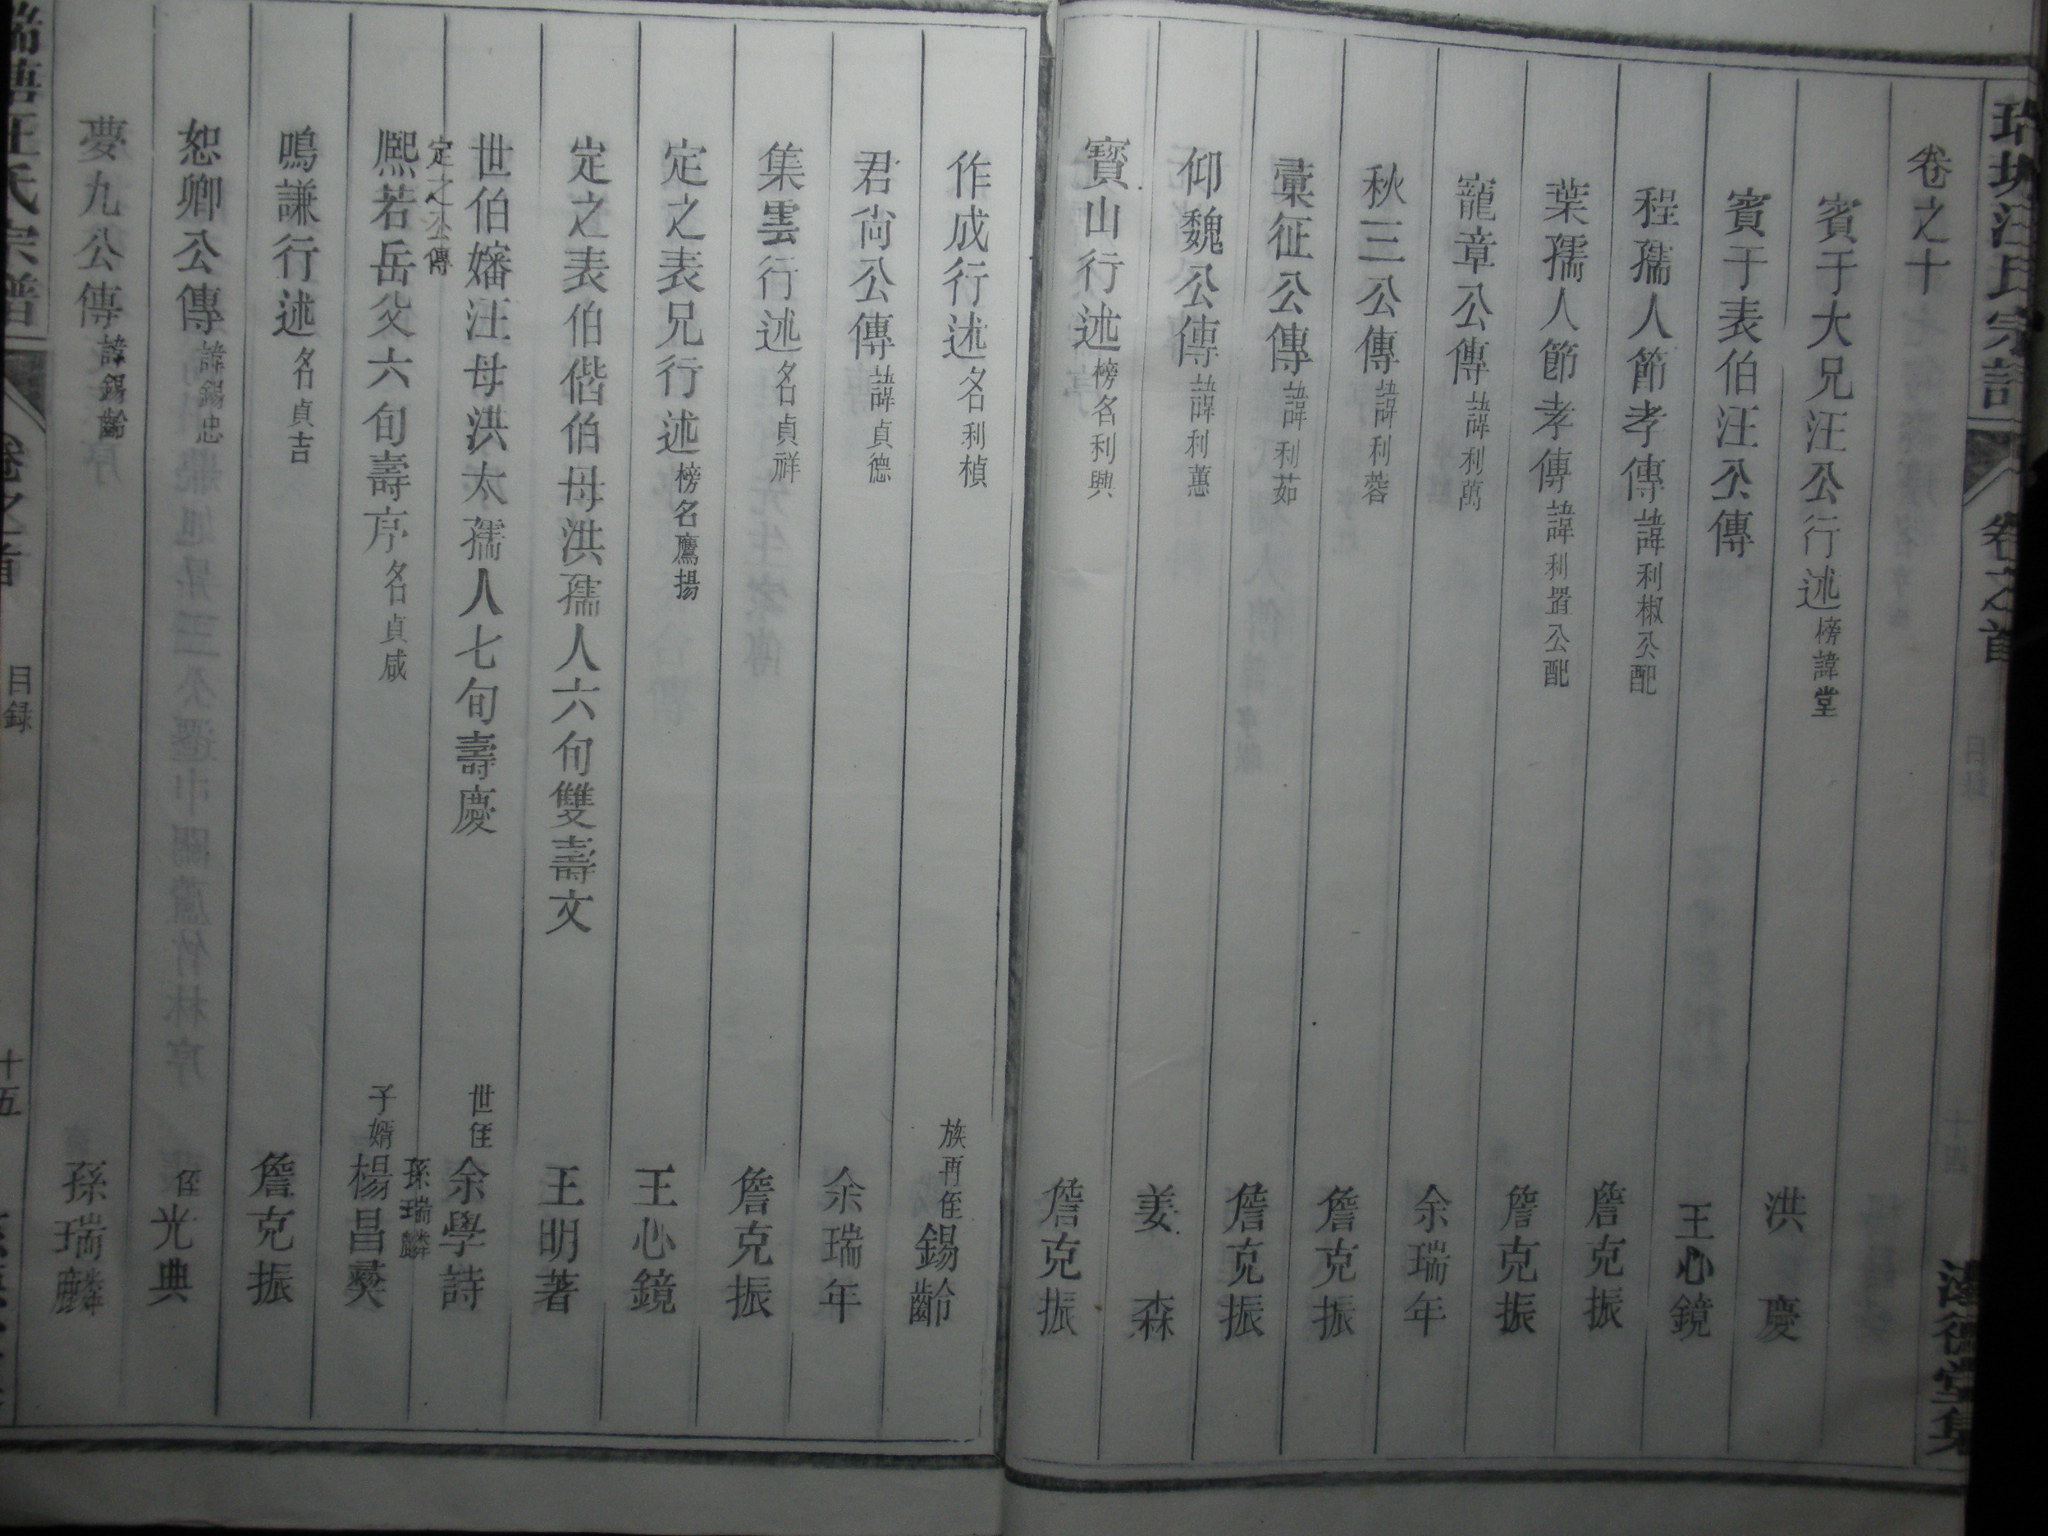 汪氏宗譜 卷之首 目錄 十四
卷之十
賓于大兄汪公行述 榜諱堂 洪慶
賓于表伯汪公傳 王心鏡
程孺人節孝傳 諱利椒公配 詹克振
葉孺人節孝傳 諱利公配 詹克振
寵章公傳 諱利萬 余瑞年
秋三公傳 諱利蓉 詹克振
彙征公傳 諱利茹 詹克振
仰魏公傳 諱利蕙 姜森
寶山行述 榜名利興 詹克振
作成行述 名利楨 族再侄錫齡
君尚公傳 諱貞德 余瑞年
集雲行述 名貞祥 詹克振
定之表兄行述 榜名鷹揚 王心鏡
定之表伯偕伯母洪孺人六旬雙壽文 王明著
世伯嬸汪母洪太孺人七旬壽慶 世侄余學詩
定之公傳 孫瑞麟
熙若岳父六旬壽序 名貞咸 子婿楊昌彝
鳴謙行述 名貞吉 詹克振
恕卿公傳 諱錫忠 侄光典
夢九公傳 諱錫齡 孫瑞麟
汪氏宗譜 卷之首 目錄 十五